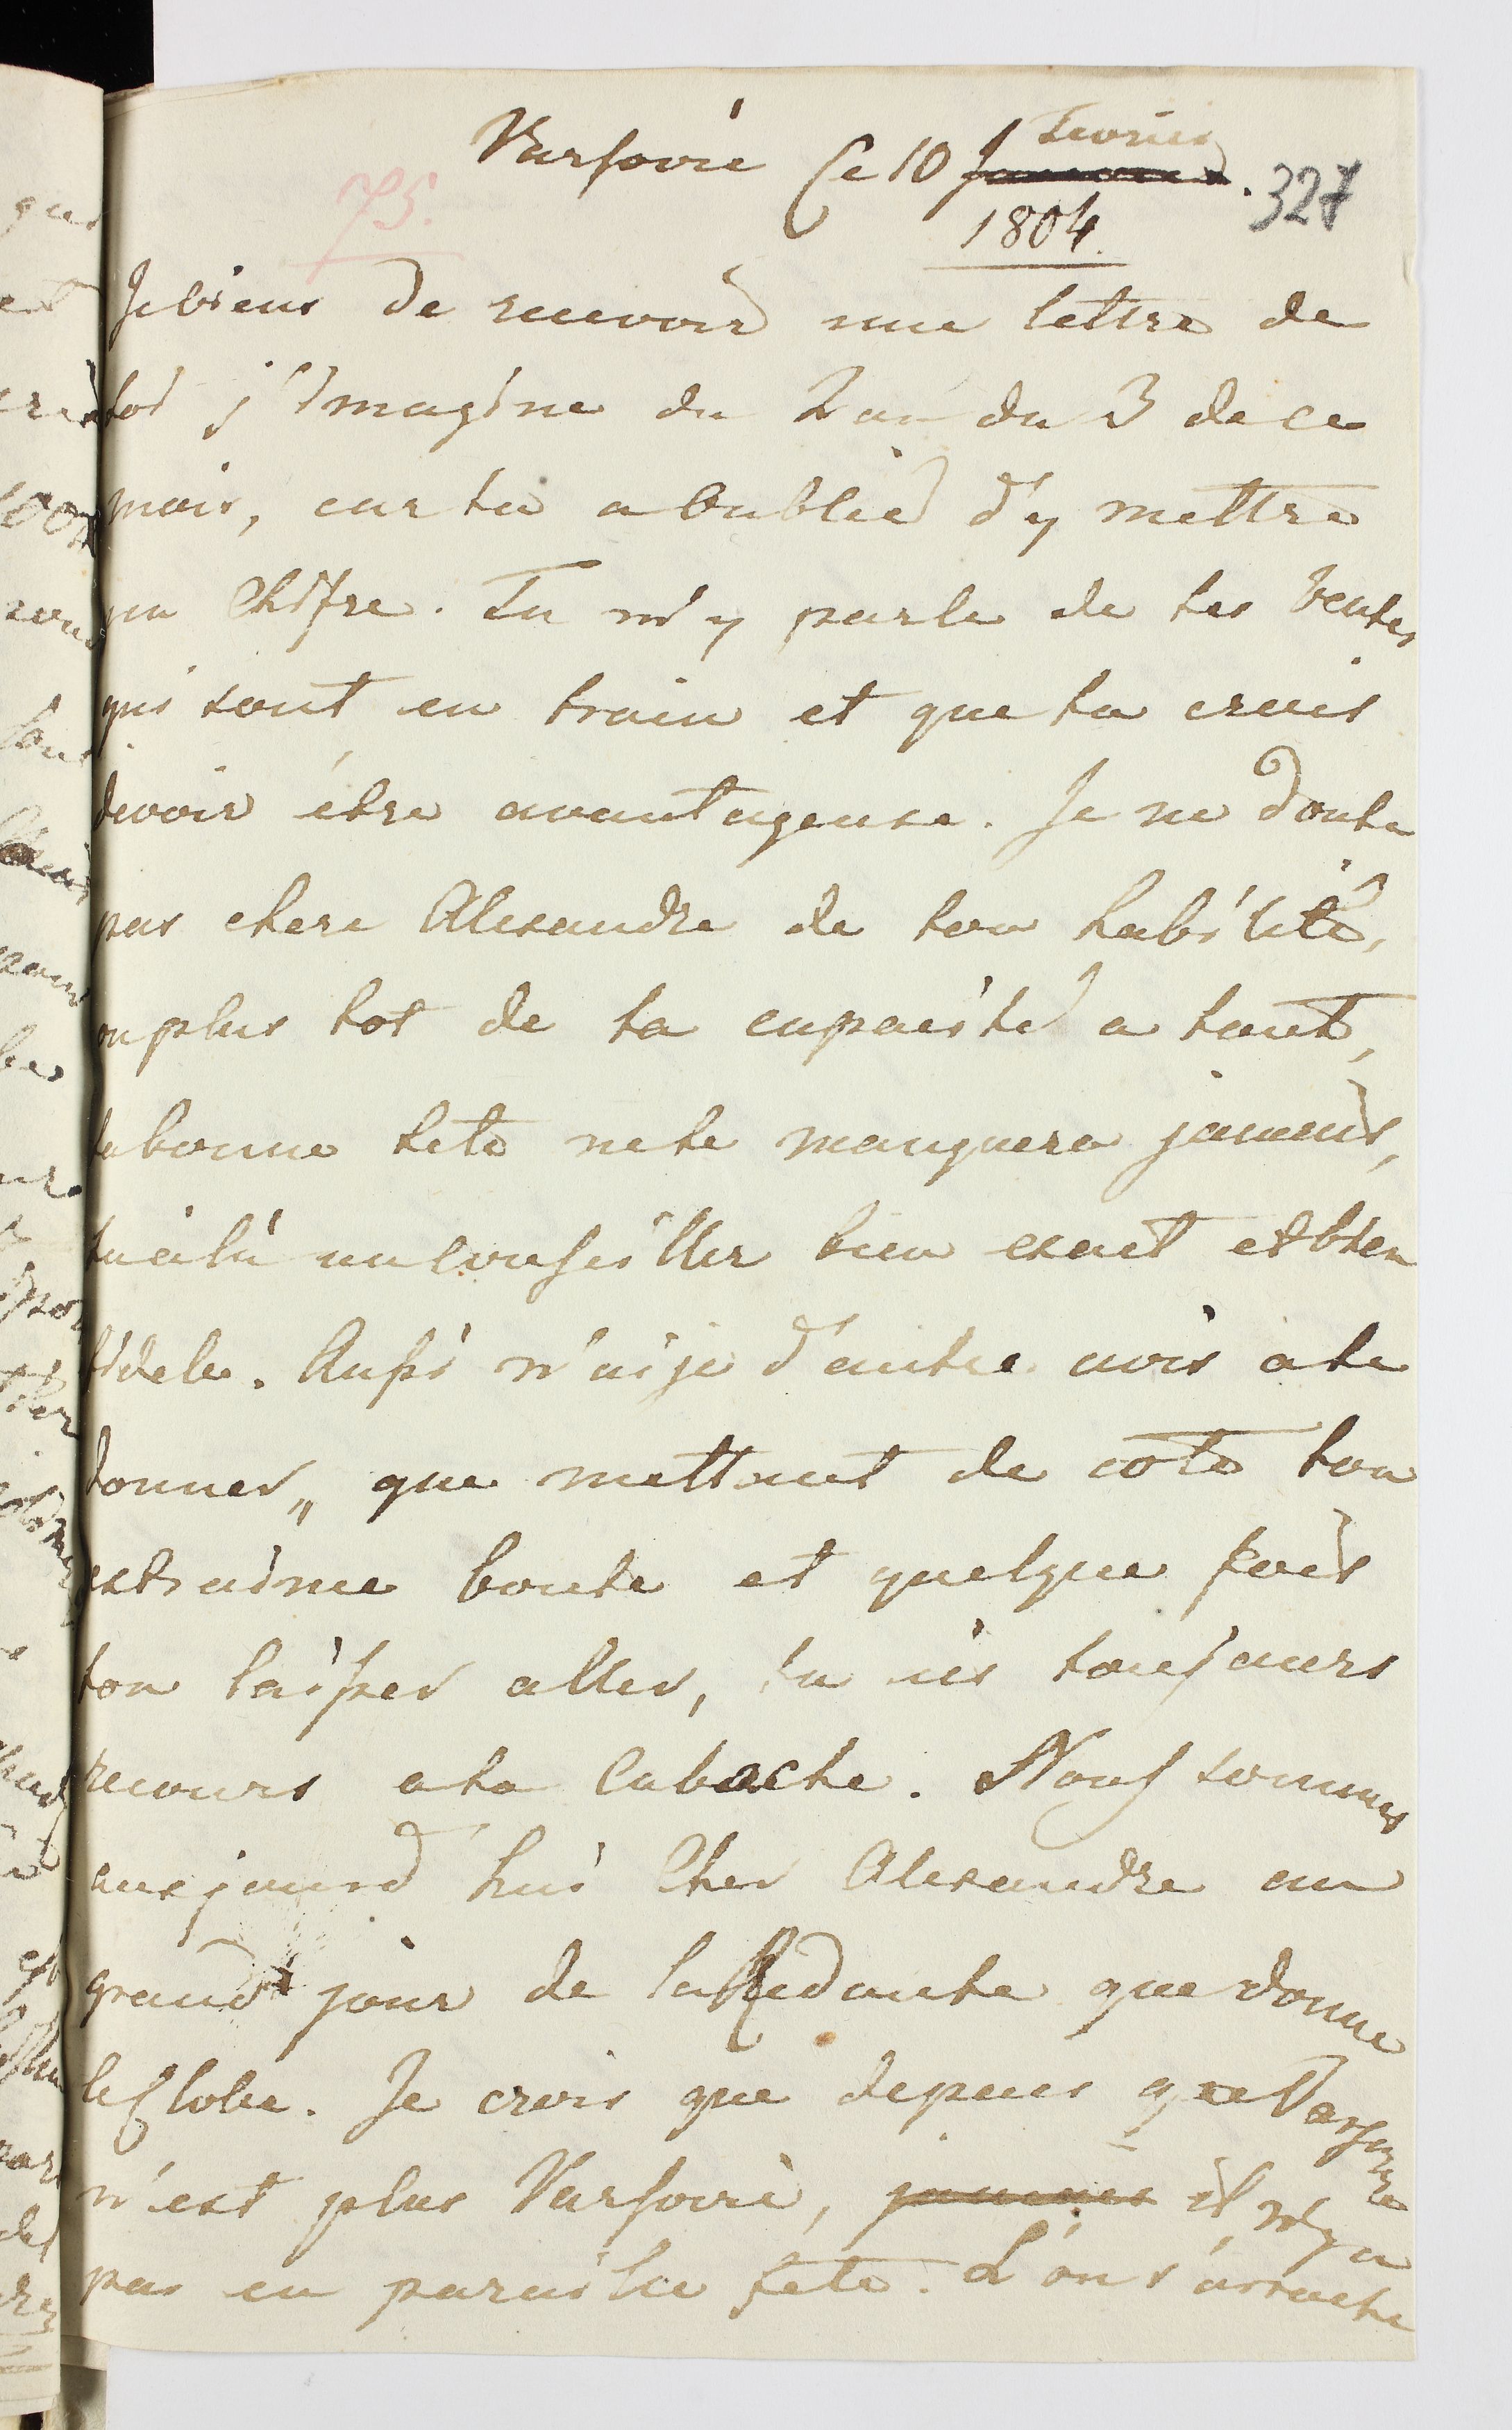 Varsovie Ce 10 Janvier Fevrier. 327
75. 1804.
Je viens de recevoir une lettre de
toi j'imagine du 2 au du 3 de ce
mois, car tu a oublié d'y mettre
un Chifre. Tu m'y parle de tes Ventes
qui sont en train et que tu crois
devoir être avantageuse. Je ne doute
pas chere Alexandre de ton habilité,
ou plus tot de ta capacité a tout,
ta bonne tete ne te manquera jamais,
un conseiller bien exact et bien
fidele. Aussi n'ai je d'autre avis a te
donner,, que mettant de coté ton
extraime bonté et quelque fois
ton laisser aller, tu ais toujours
recours a ta Caboche. Nous sommes
aujourd'hui Cher Alexandre au
grand jour de la Redoute que donne
le Globe. Je crois que depuis que Varsovie
n'est plus Varsovie, jamais il n'y a
pas eu pareille fete. L'on s'arrache